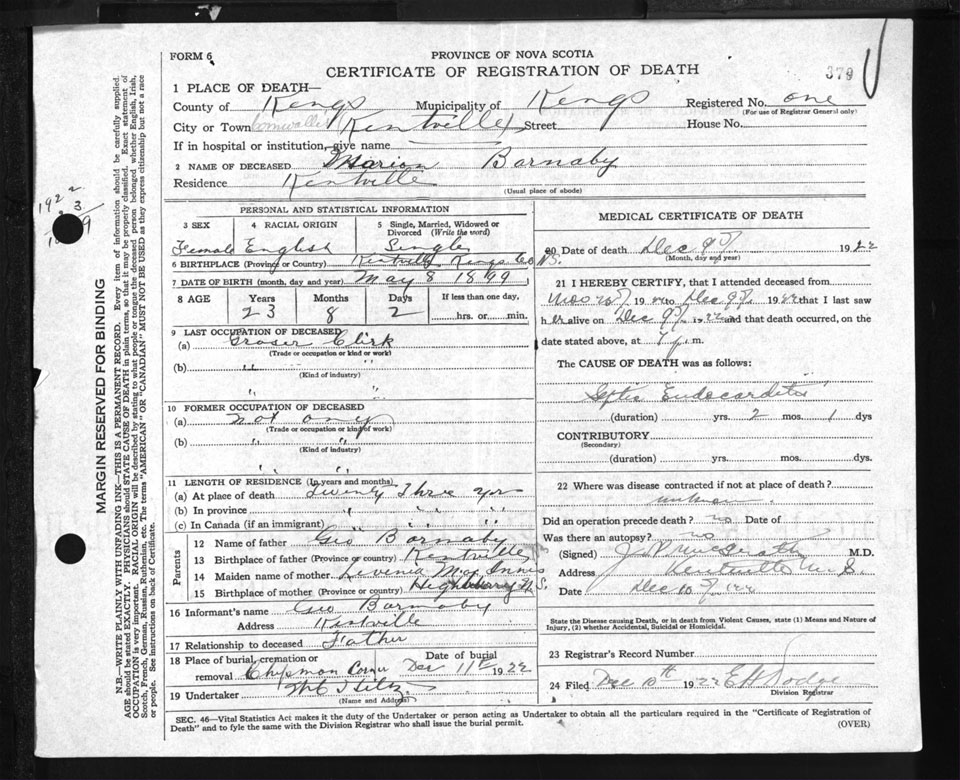 FORM 6
PROVINCE OF NOVA SCOTIA
CERTIFICATE OF REGISTRATION OF DEATH
379
1 PLACE OF DEATH—
County of Kings Municipality of Kings Registered No. one
(For use of Registrar General only)
City or Town Cornwallis Kentville Street House No.
If in hospital or institution, give name
2 NAME OF DECEASED Marion Barnaby
Residence Kentville
(Usual place of abode)
PERSONAL AND STATISTICAL INFORMATION
3 SEX 4 RACIAL ORIGIN 5 Single, Married, Widowed or Divorced (Write the word)
Female English Single
6 BIRTHPLACE (Province or Country) Kentville Kings Co N.S.
7 DATE OF BIRTH (month, day and year) May 8 1899
8 AGE Years Months Days If less than one day,
23 8 2 hrs. or min.
9 LAST OCCUPATION OF DECEASED
(a) Groser Clirk
(Trade or occupation or kind of work)
(b) " "
(Kind of industry)
" "
10 FORMER OCCUPATION OF DECEASED
(a) Not any
(Trade or occupation or kind of work)
(b) " "
(Kind of industry)
" "
11 LENGTH OF RESIDENCE (In years and months)
(a) At place of death Twenty Three yrs
(b) In province " " "
(c) In Canada (if an immigrant) " " "
Parents
12 Name of father Geo Barnaby
13 Birthplace of father (Province or country) Kentville
14 Maiden name of mother Livenia Mac Innis
15 Birthplace of mother (Province or country) N.S.
16 Informant's name Geo Barnaby
Address Kentville
17 Relationship to deceased Father
18 Place of burial, cremation or removal Chipman Corner Date of burial Dec 11th 1922
19 Undertaker
(Name and Address)
MEDICAL CERTIFICATE OF DEATH
20 Date of death Dec 9th 1922
(Month, day and year)
21 I HEREBY CERTIFY, that I attended deceased from
1922 to Dec 9th 1922 that I last saw
her alive on Dec 9th 1922 and that death occurred, on
date stated above, at p.m.
The CAUSE OF DEATH was as follows:
Septic Endocarditis
(duration) yrs. 2 mos. 1 dys
CONTRIBUTORY
(Secondary)
(duration) yrs. mos. dys.
22 Where was disease contracted if not at place of death?
unknown
Did an operation precede death? no Date of
Was there an autopsy? no
(Signed) M.D.
Address Kentville N.S.
Date Dec 10th 22
State the Disease causing Death, or in death from Violent Causes, state (1) Means and Nature of
Injury, (2) whether Accidental, Suicidal or Homicidal.
23 Registrar's Record Number
24 Filed Dec 10th 1922 E H Dodge
Division Registrar
SEC. 46—Vital Statistics Act makes it the duty of the Undertaker or person acting as Undertaker to obtain all the particulars required in the "Certificate of Registration of
Death" and to fyle the same with the Division Registrar who shall issue the burial permit.
(OVER)
MARGIN RESERVED FOR BINDING
N.B.—WRITE PLAINLY WITH UNFADING INK—THIS IS A PERMANENT RECORD. Every item of information should be carefully supplied.
AGE should be stated EXACTLY. PHYSICIANS should STATE CAUSE OF DEATH in plain terms, so that it may be properly classified. Exact statement of
OCCUPATION is very important. RACIAL ORIGIN will be described by stating to what people or tongue the deceased person belonged whether English, Irish,
Scotch, French, German, Russian, Ruthenian, etc. The terms "AMERICAN" OR "CANADIAN" MUST NOT BE USED as they express citizenship but not a race
or people. See instructions on back of Certificate.